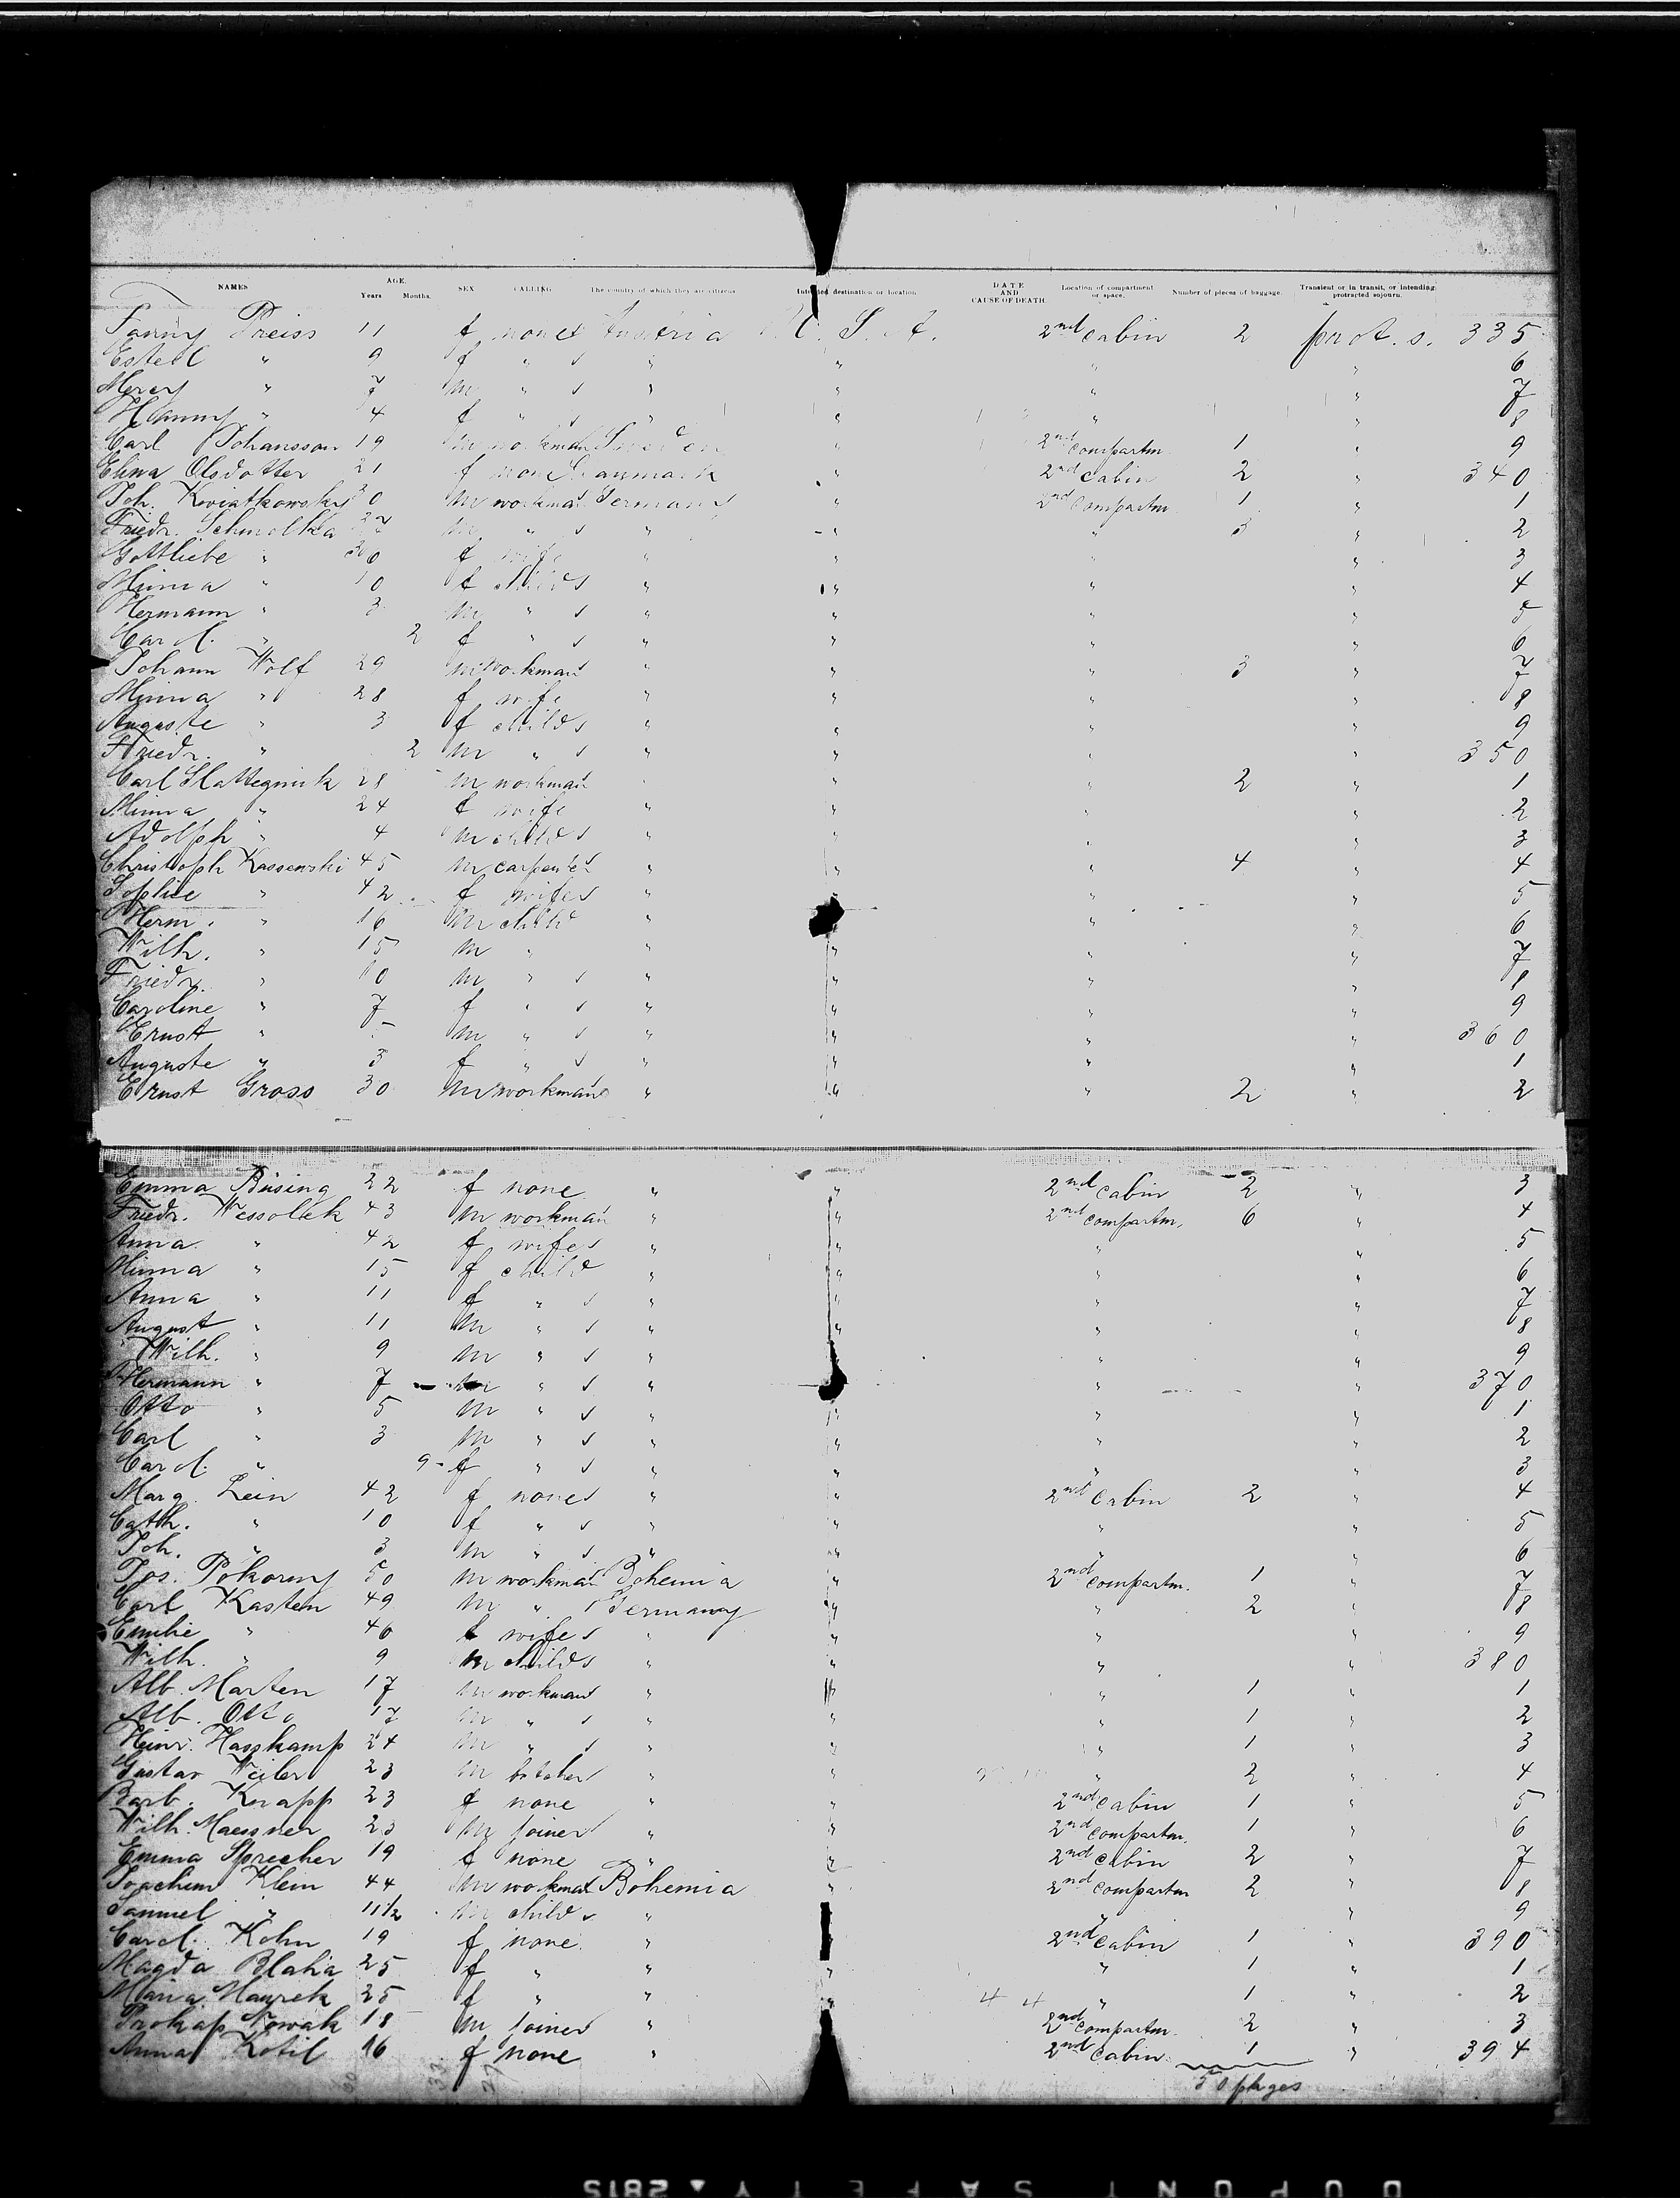 NAMES AGE. Years Months. SEX CALLING The country of which they are citizens Intended destination or location DATE AND CAUSE OF DEATH. Location of compartment or space. Number of pieces of baggage. Transient or in transit, or intending protracted sojourn.
Fanny Preiss 11 f none s Austria U. S. A. 2nd Cabin 2 prot. s. 335
Estell " 9 f " s " " " " 6
" 7 m " s " " " " 7
Hanny " 4 f " s " " " " 8
Carl Johansson 19 m workman Sweden " 2nd compartm. 1 " 9
Elina Olsdotter 21 f none Danmark " 2nd Cabin 2 " 340
Joh. Kwiatkowsky 30 m workman Germany " 2nd Compartm. 1 " 1
Friedr. Schmolka m " s " " " 3 " 2
Gottliebe " 30 f wife " " " " 3
Minna " 10 f child s " " " " 4
Hermann " 3 m " s " " " " 5
Carol. " 2 f " s " " " " 6
Johann Wolf 29 m workman " " " 3 " 7
Minna " 28 f wife " " " " 8
Auguste " 3 f child s " " " " 9
Friedr. " 2 m " s " " " " 350
Carl 28 m workman " " " 2 " 1
Minna " 24 f wife " " " " 2
Adolph " 4 m child s " " " " 3
Christoph Kassewski 45 m carpenter " " " 4 " 4
Sophie " 42 f wife s " " " " 5
Herm. " 16 m child " " " " 6
Wilh. " 15 m " " " " " 7
Friedr. " 10 m " s " " " " 8
Caroline " 7 f " s " " " " 9
Ernst " m " s " " " " 360
Auguste " 3 f " s " " " " 1
Ernst Gross 30 m workman " " " 2 " 2
Emma Büsing 22 f none " " 2nd Cabin 2 " 3
Friedr. Wessollek 43 m workman " " 2nd compartm. 6 " 4
Anna " 42 f wife s " " " " 5
Minna " 15 f child " " " " 6
Anna " 11 f " s " " " " 7
August " 11 m " s " " " " 8
Wilh. " 9 m " s " " " " 9
Hermann " 7 m " s " " " " 370
Otto " 5 m " s " " " " 1
Carl " 3 m " s " " " " 2
Carol. " 9 f " s " " " " 3
Marg. Lein 42 f none s " " 2nd Cabin 2 " 4
Cath. " 10 f " s " " " " 5
Joh. " 3 m " s " " " " 6
Jos. Pokorny 50 m workman Bohemia " 2nd compartm. 1 " 7
Carl Kasten 49 m " Germany " " 2 " 8
Emilie " 46 f wife s " " " " 9
Wilh. " 9 m child s " " " " 380
Alb. Marten 17 m workman " " " 1 " 1
Alb. Otto 17 m " s " " " 1 " 2
Heinr. Hasskamp 24 m " s " " " 1 " 3
Gustav Weiler 23 m butcher " " " 2 " 4
Barb. Knapp 23 f none " " 2nd Cabin 1 " 5
Wilh. Maessner 23 m joiner " " 2nd compartm. 1 " 6
Emma Sprecher 19 f none " " 2nd Cabin 2 " 7
Joachim Klein 44 m workman Bohemia " 2nd compartm 2 " 8
Samuel " 11 1/2 m child s " " " " 9
Carol. Kohn 19 f none " " 2nd Cabin 1 " 390
Magda Blaha 25 f " " " " 1 " 1
Maria 25 f " " " " 1 " 2
Prokop Nowak 18 m joiner " 2nd compartm. 2 " 3
Anna Kotil 16 f none " 2nd Cabin 1 " 394
DUPONT SAFETY ▲ 2815